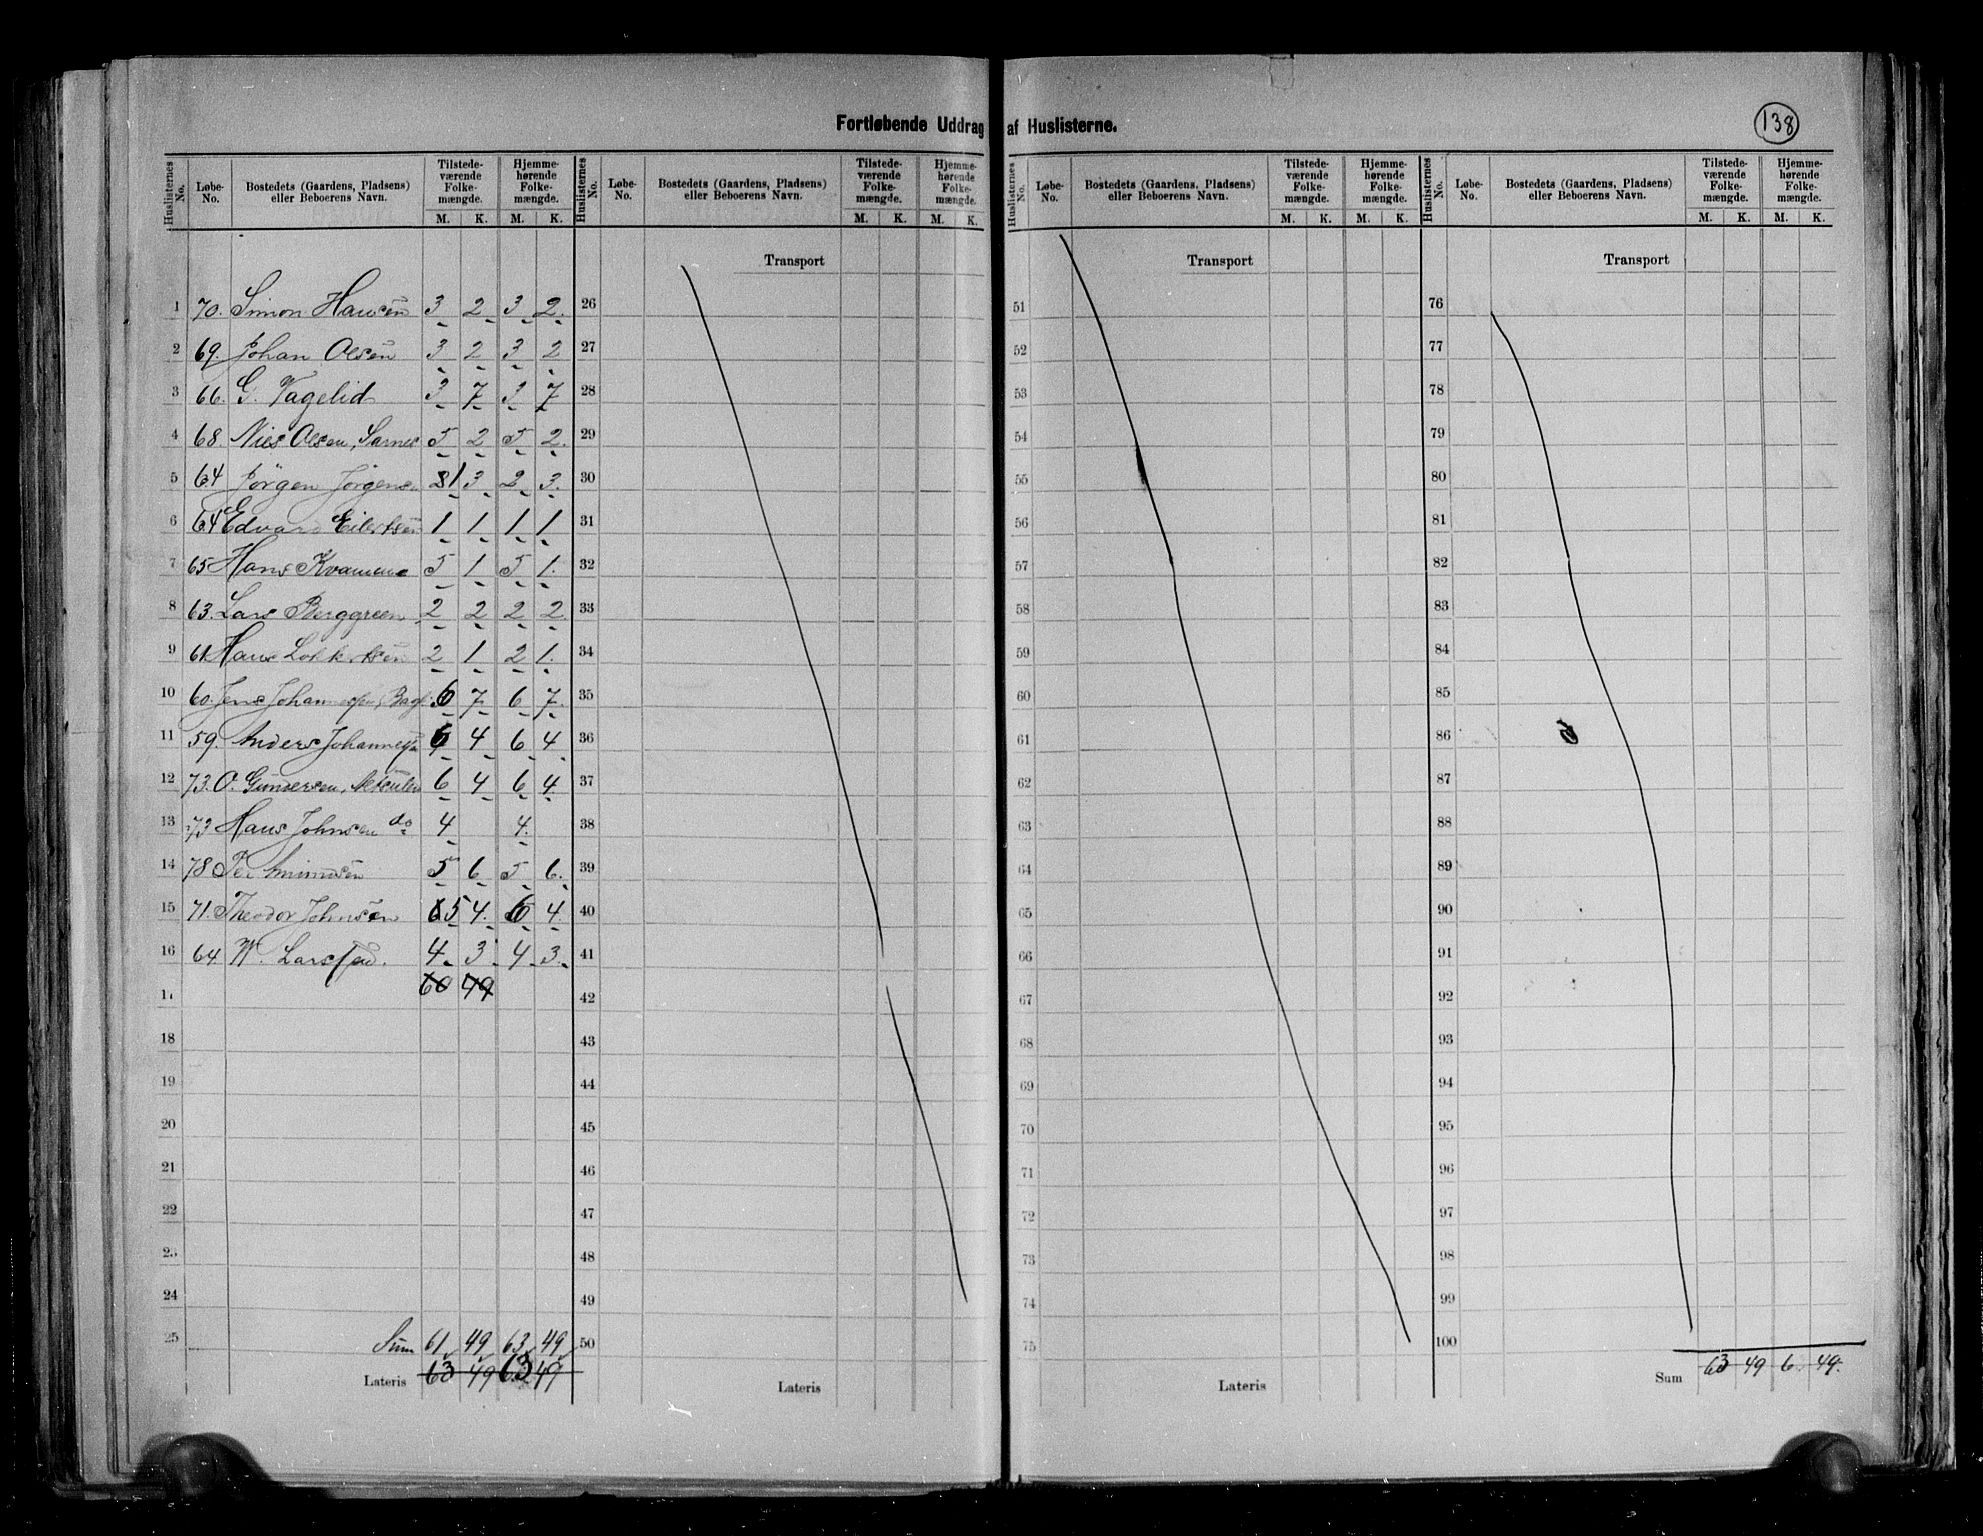 Fortløbende Uddrag af Huslisterne.
138
Huslisternes No. Løbe-No. Bostedets (Gaardens, Pladsens) eller Beboerens Navn. Tilstedeværende Folkemængde. M. K. Hjemmehørende Folkemængde. M. K.
Huslisternes No. Løbe-No. Bostedets (Gaardens, Pladsens) eller Beboerens Navn. Tilstedeværende Folkemængde. M. K. Hjemmehørende Folkemængde. M. K.
Huslisternes No. Løbe-No. Bostedets (Gaardens, Pladsens) eller Beboerens Navn. Tilstedeværende Folkemængde. M. K. Hjemmehørende Folkemængde. M. K.
Huslisternes No. Løbe-No. Bostedets (Gaardens, Pladsens) eller Beboerens Navn. Tilstedeværende Folkemængde. M. K. Hjemmehørende Folkemængde. M. K.
Transport Transport Transport
1 70. Simon Hansen 3 2 3 2. 26 51 76
2 69. Johan Olsen 3 2 3 2 27 52 77
3 66. G. Vagelid 3 7 3 7 28 53 78
4 68. Nils Olsen, Sarnes 5 2 5 2. 29 54 79
5 64 Jørgen Jørgens. 1 3 2 3. 30 55 80
6 64 Edvard Eilertsen 1 1 1 1 31 56 81
7 65 Hans Kvamme 5 1 5 1. 32 57 82
8 63. Lars Berggreen 2 2 2 2 33 58 83
9 61 Hans 2 1 2 1. 34 59 84
10 60. Jens Johannesen, 6 7 6 7. 35 60 85
11 59. Anders Johannesen 6 4 6 4 36 61 86
12 73. O. Gundersen, 6 4 6 4 37 62 87
13 73 Hans Johnsen do 4 4. 38 63 88
14 78 Per 5 6 5 6. 39 64 89
15 71. Theodor Johnsen 5 4. 6 4. 40 65 90
16 64 Larssen. 4 3 4 3. 41 66 91
60 49
17 42 67 92
18 43 68 93
19 44 69 94
20 45 70 95
21 46 71 96
22 47 72 97
23 48 73 98
24 49 74 99
25 Sum 61 49 63 49 50 75 100
Lateris 63 49 63 49 Lateris Lateris Sum 63 49 6 49.